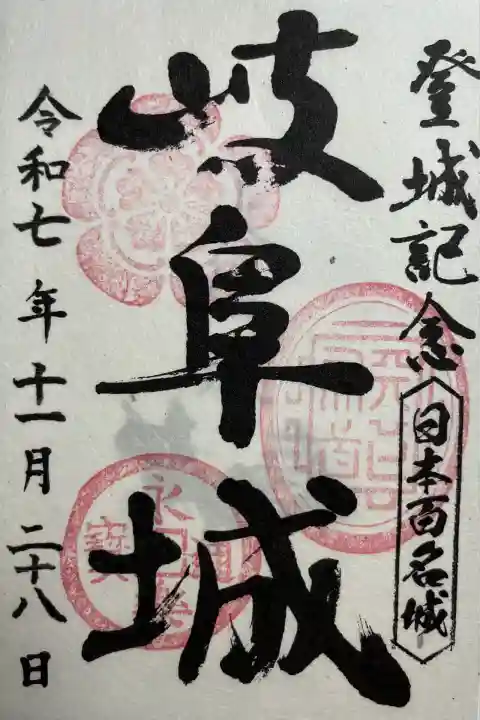 登城記念
日本百名城
岐阜城
令和七年十一月二十八日
永樂通寳